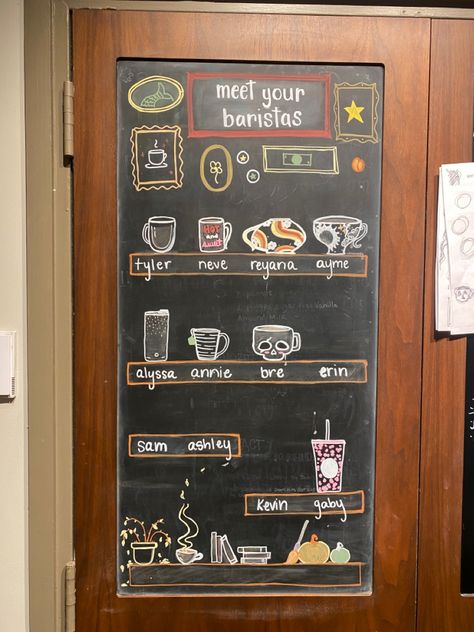 meet your
baristas
HOT
and
sweet
tyler neve reyana ayme
alyssa annie bre erin
sam ashley
kevin gaby